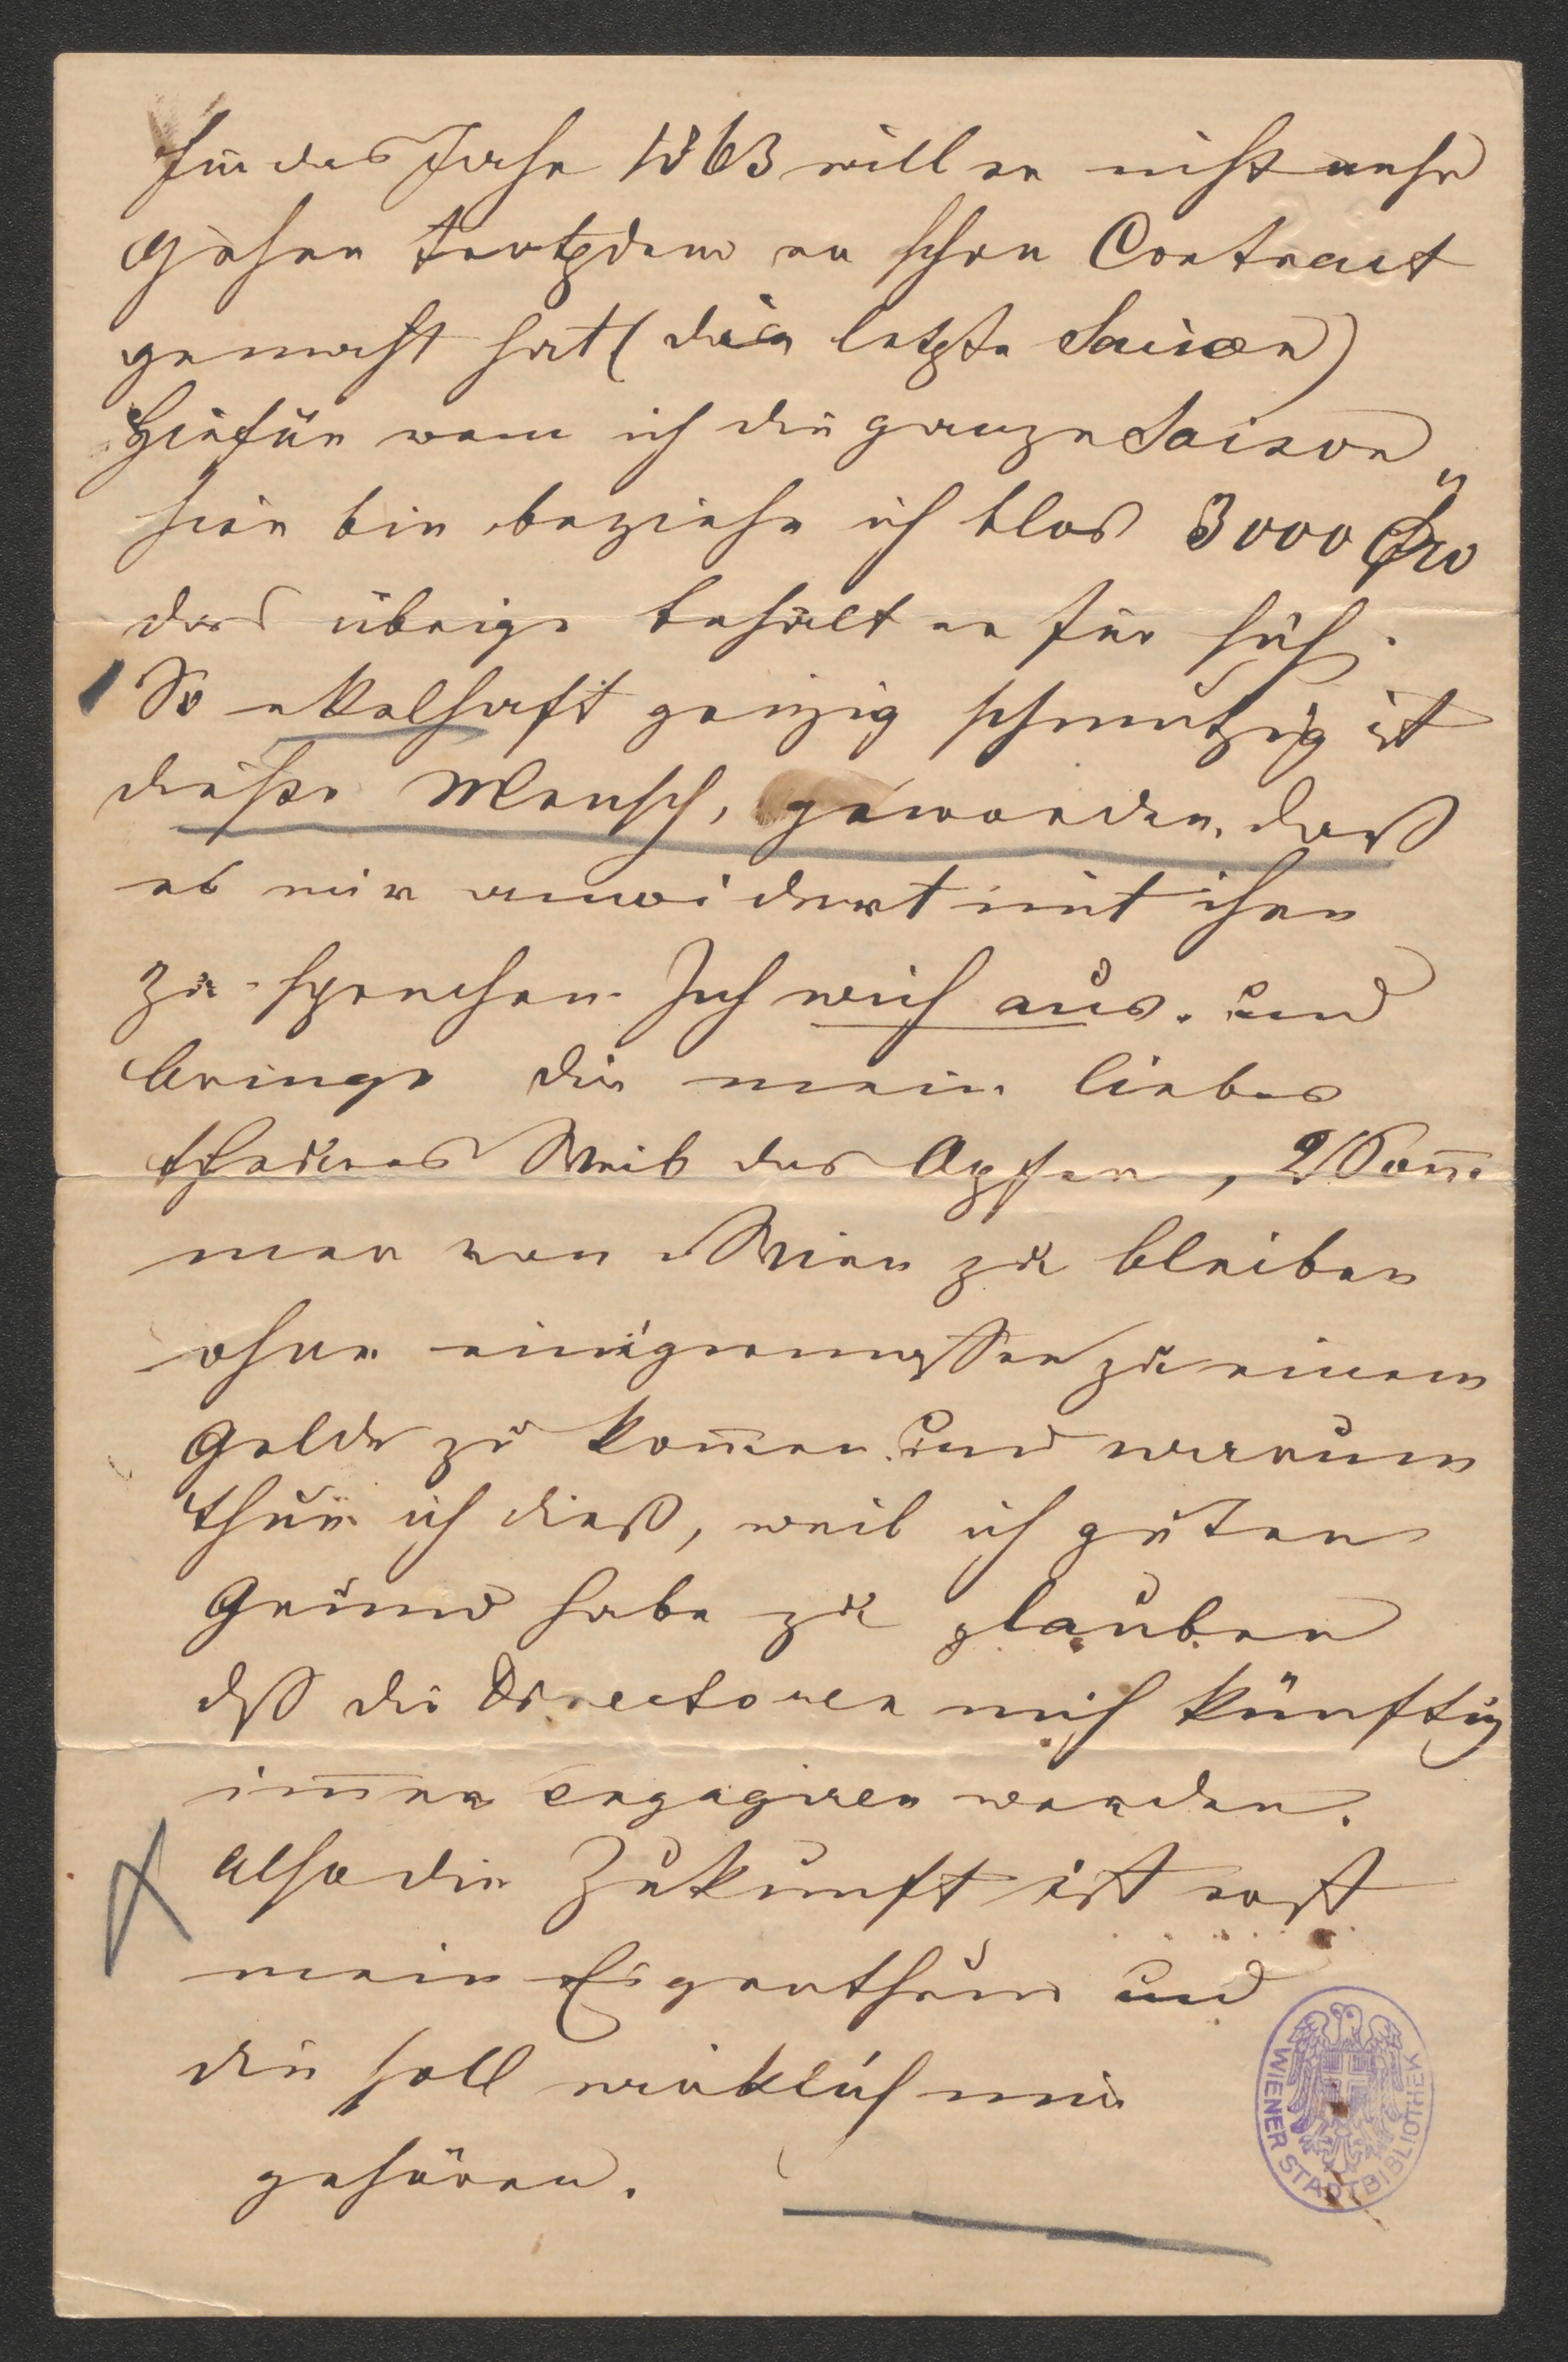 Für das Jahr 1863 will er nicht mehr
gehen trotzdem er schon Contract
gemacht hat (die letzte Saison)
Hiefür wenn ich die ganze Saison
hier bin beziehe ich blos 3000
das übrige behält er für sich.
So ekelhaft geizig schmutzig ist
dieser Mensch, geworden, daß
es mir anwidert mit ihm
zu sprechen. Ich weich aus. und
bringe dir mein liebes
theures Weib das Opfer, 2 Som̄
mer von Wien zu bleiben
ohne einigermassen zu einem
Gelde zu kom̄en. und warum
thue ich dieß, weil ich guten
Grund habe zu glauben
dß die Directoren mich künftig
im̄er engagiren werden.
Also die Zukunft ist erst
mein Eigenthum und
die soll wirklich mir
gehören.
WIENER STADTBIBLIOTHEK